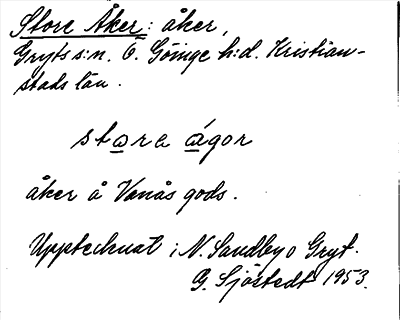 Store Åker: åker,
Gryts s:n. Ö. Göinge h:d. Kristian-
stads län.
stora ágor
åker å Vanås gods.
Upptecknat i N. Sandby o Gryt.
G. Sjöstedt 1953.